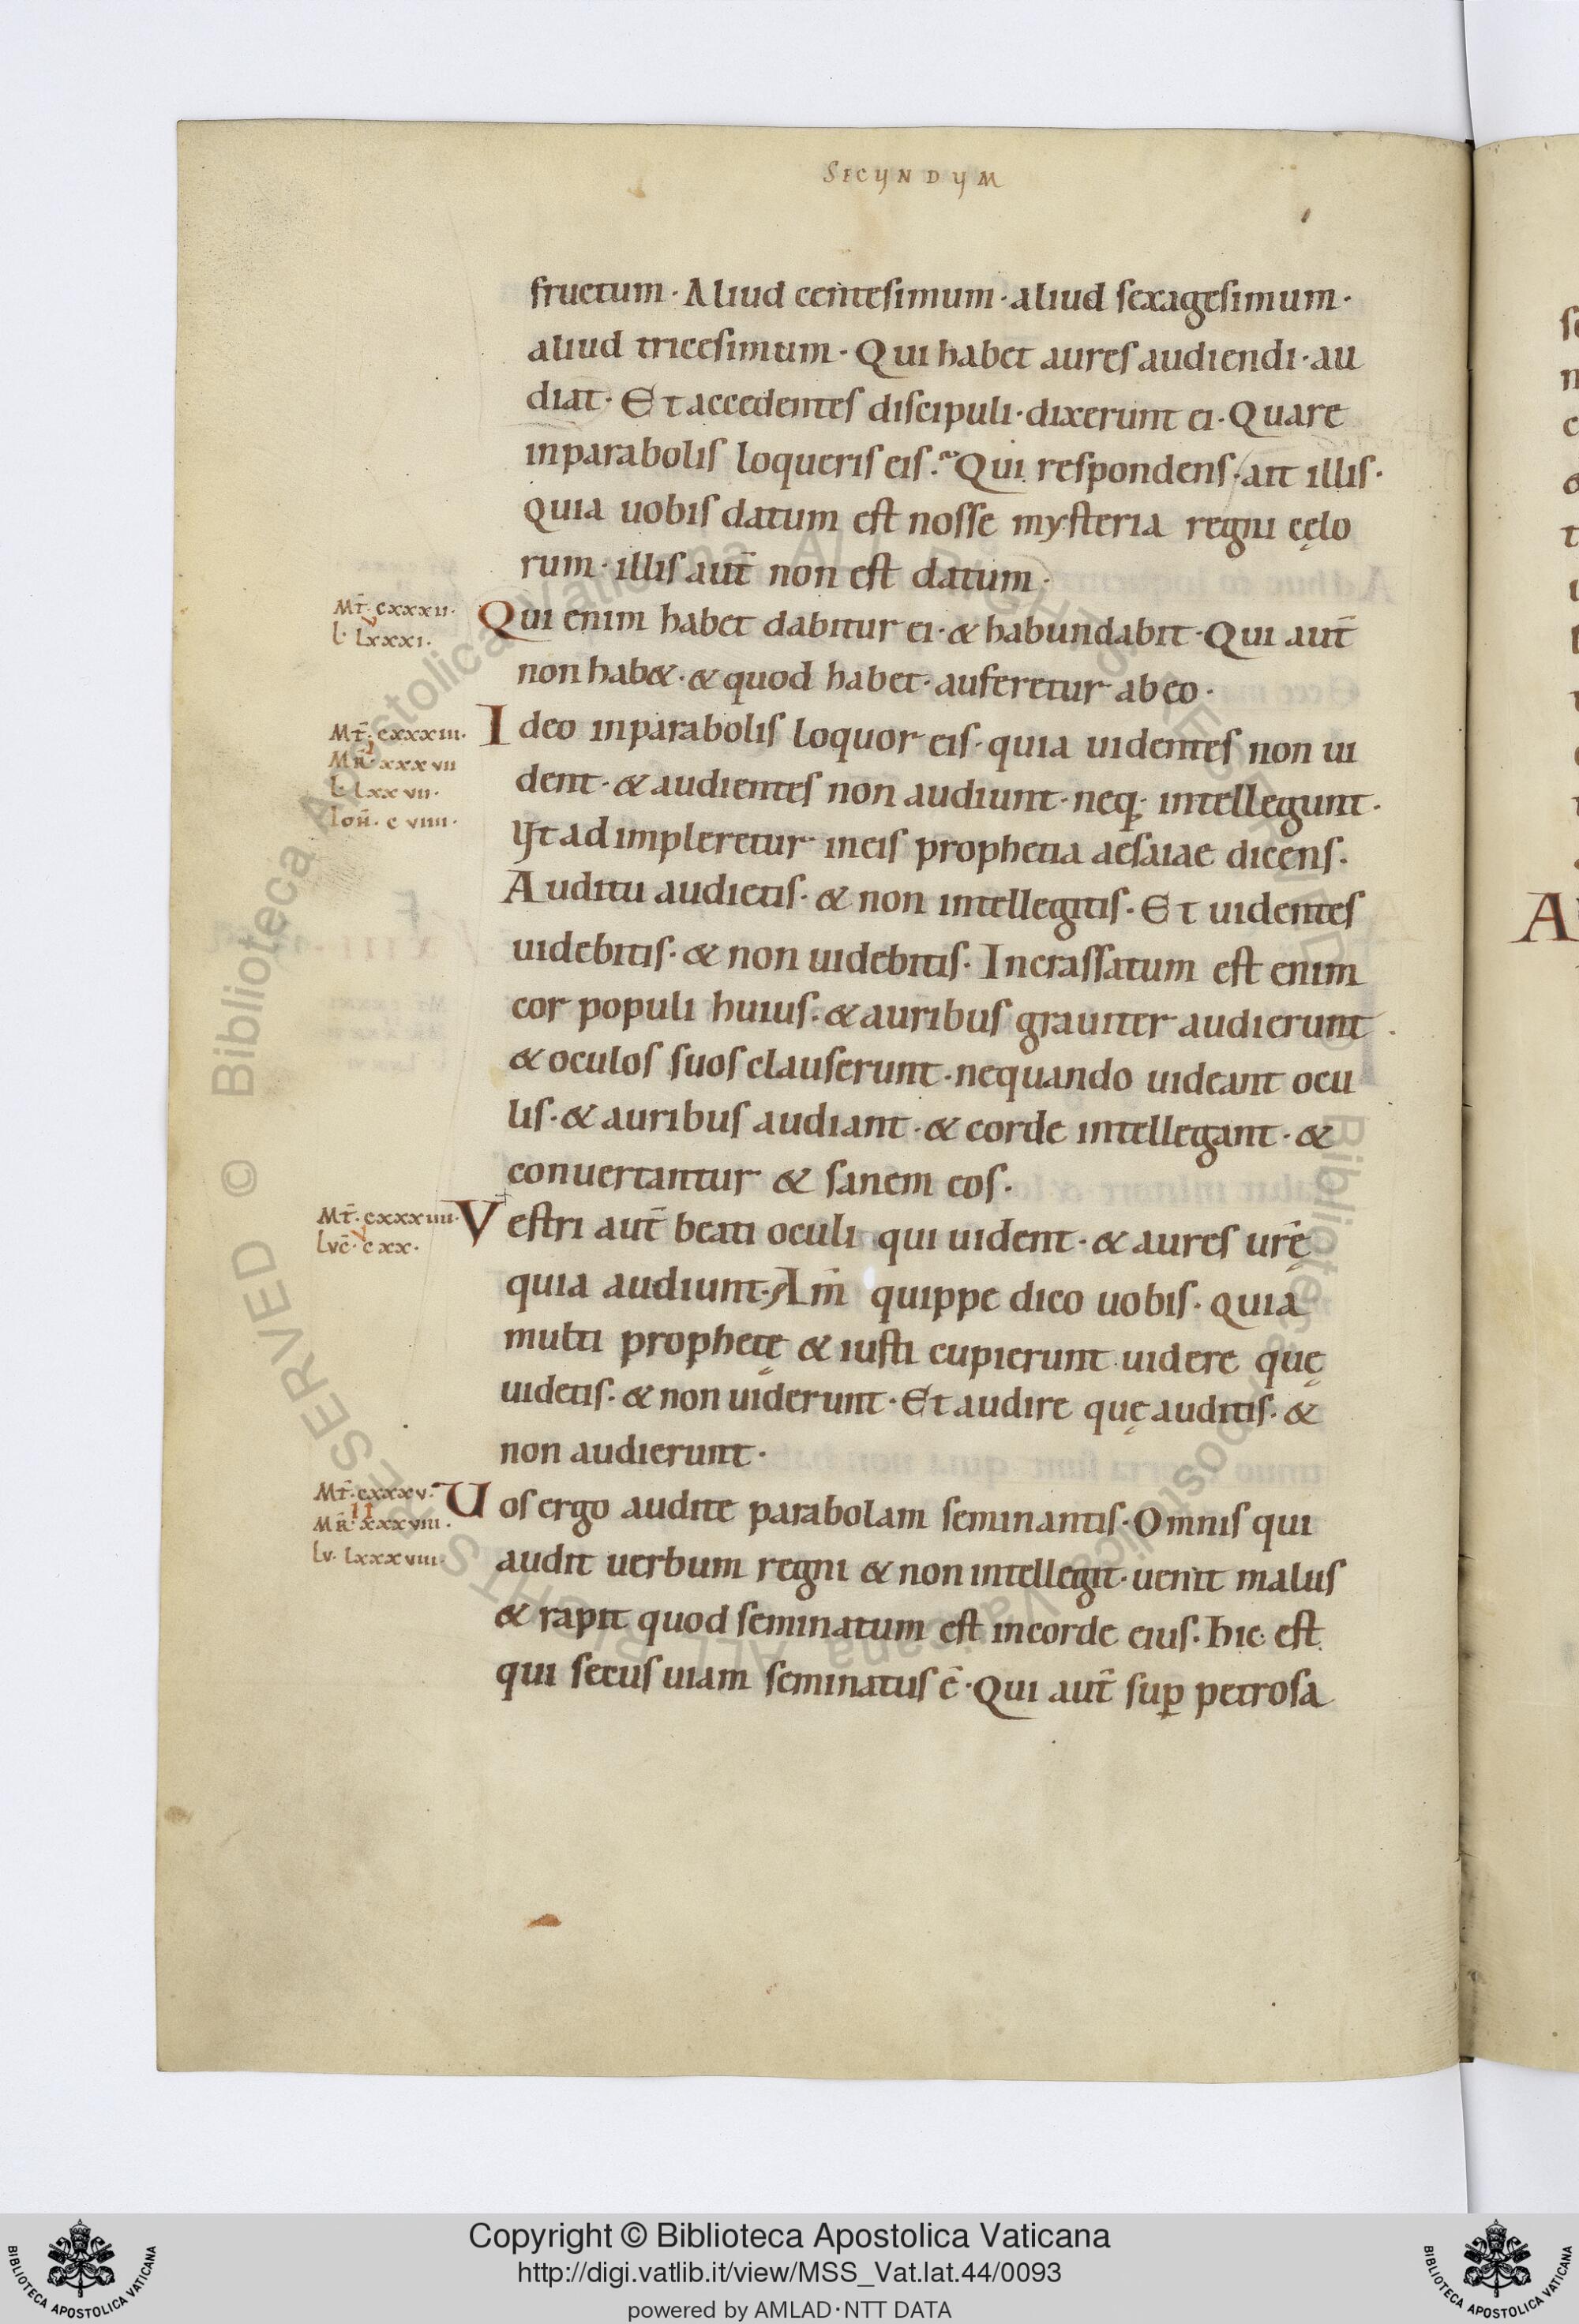 SECUNDUM
fructum · Aliud centesimum · aliud sexagesimum ·
aliud tricesimum · Qui habet aures audiendi · au
diat · Et accedentes discipuli · dixerunt ei · Quare
inparabolis loqueris eis · Qui respondens · ait illis ·
quia uobis datum est nosse mysteria regni cęlo
rum · illis aut̄ non est datum ·
Mt̄ · cxxxii ·
v
l · lxxxi ·
Qui enim habet dabitur ei · & habundabit · Qui aut̄
non hab& · & quod habet · auferetur ab eo ·
Mt̄ · cxxxiii ·
I
MR̄ · xxxvii
l · lxxvii ·
Ioh̄ · cviiii ·
Ideo inparabolis loquor eis · quia uidentes non ui
dent · & audientes non audiunt · neq; intellegunt ·
Ut adimpleretur ineis prophetia aesaiae dicens ·
Auditu audietis · & non intellegitis · Et uidentes
uidebitis · & non uidebitis · Incrassatum est enim
cor populi huius · & auribus grauiter audierunt
& oculos suos clauserunt · nequando uideant ocu
lis · & auribus audiant · & corde intellegant · &
conuertantur & sanem eos ·
Mt̄ · cxxxiiii ·
v
Luc̄ · cxx ·
Vestri aut̄ beati oculi qui uident · & aures ur̄ę
quia audiunt · Am̄ quippe dico uobis · quia
multi prophetę & iusti cupierunt uidere quę
uidetis · & non uiderunt · Et audire quę auditis · &
non audierunt ·
Mt̄ · cxxxv ·
II
MR̄ · xxxviii ·
Lu · lxxxviii ·
Uos ergo audite parabolam seminantis · Omnis qui
audit uerbum regni & non intellegit · uenit malus
& rapit quod seminatum est incorde eius · hic est
qui secus uiam seminatus ē · Qui aut̄ sup̄ petrosa
© Biblioteca Apostolica Vaticana ALL RIGHTS RESERVED
© Biblioteca Apostolica Vaticana ALL RIGHTS RESERVED
BIBLIOTECA APOSTOLICA VATICANA
Copyright © Biblioteca Apostolica Vaticana
http://digi.vatlib.it/view/MSS_Vat.lat.44/0093
powered by AMLAD·NTT DATA
BIBLIOTECA APOSTOLICA VATICANA